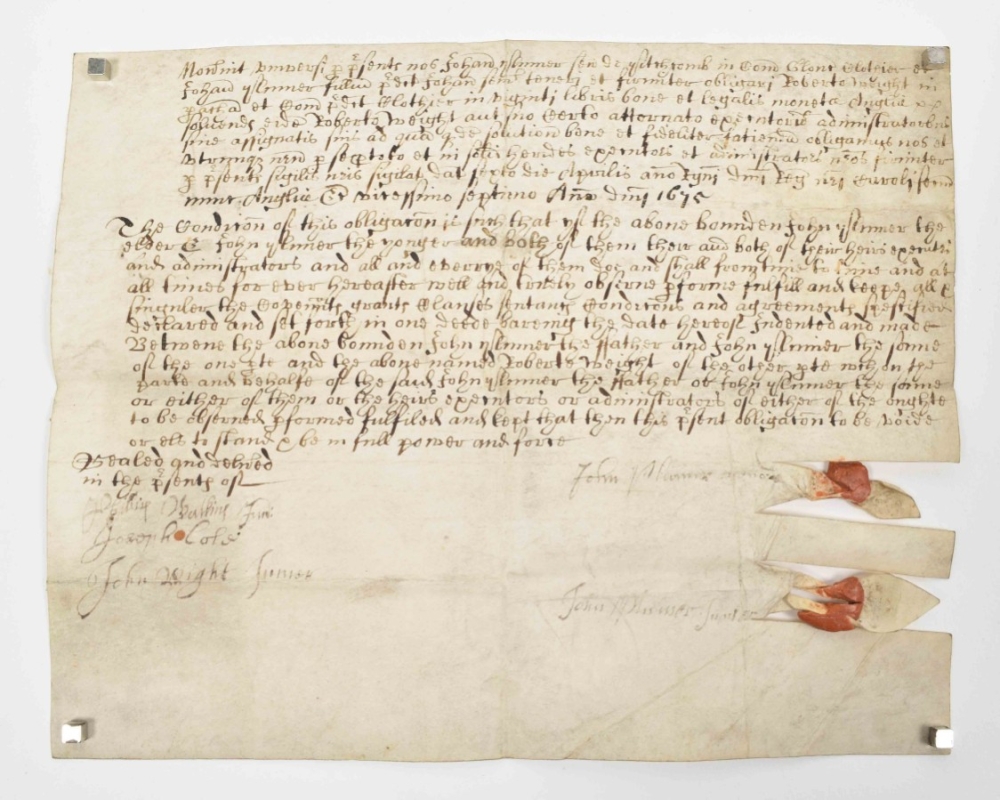 Noverint universi p p̄sents nos Johan̄ Skinner sen de in Com̄ Glouc Clothier et
Johan̄ Skinner filiu p̄dict Johan̄ sen teneri et firmiter obligari Roberto Weight in
p̄dca et Com̄ p̄dict Clothier in viginti libris bone et legalis moneta Anglie
solvend eidm Roberto Weight aut suo Certo attornato executorib administratorbus
sive assignatis suis ad qua quide solution bene et fideliter faciend obligamus nos et
utrumqz nrm p se et in herides executors et administrators nros firmiter
p p̄sents sigilis nris sigilat dat sexto die Aprilis ano Rgni dmi Reg nri Caroli secund
nunc Anglie &c vicessimo septimo Ano dmi 1675
The Condicōn of this obligacōn is such that yf the above bounden John Skinner the
elder & John Skinner the yonger and both of them their and both of their heirs executrs
and administrators and all and everrye of them doe and shall from time to time and at
all times for ever hereafter well and truely observe pforme fulfill and keepe all &
singuler the Covennts grants Clauses Conditions and agreements specified
declared and set forth in one deede bareing the date hereof Indented and made
Betwene the above bounden John Skinner the father and John Skinner the sonne
of the one pte and the above named Roberte Weight of the other pte wch on the
parte and behalfe of the said John Skinner the father or John Skinner the sonne
or either of them or the heirs executors or administrators of either of the oughte
to be observed pformed fulfiled and kept that then this p̄sent obligacōn to be voide
or els to stand & be in full power and force
Sealed and delived
in the p̄sents of
John Skinner
Watkins Jun
Joseph Cole
John Wight Juner
John Skinner Juner